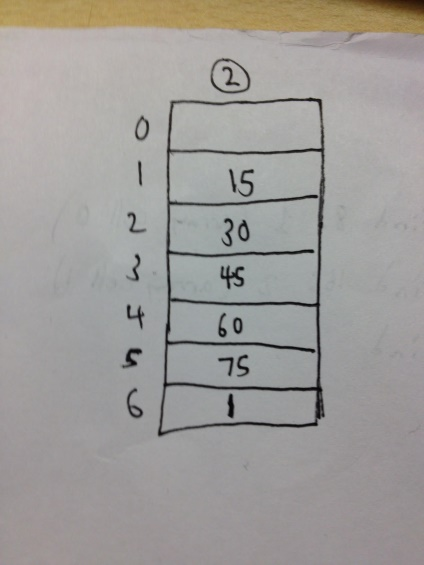 2
0
1 15
2 30
3 45
4 60
5 75
6 1